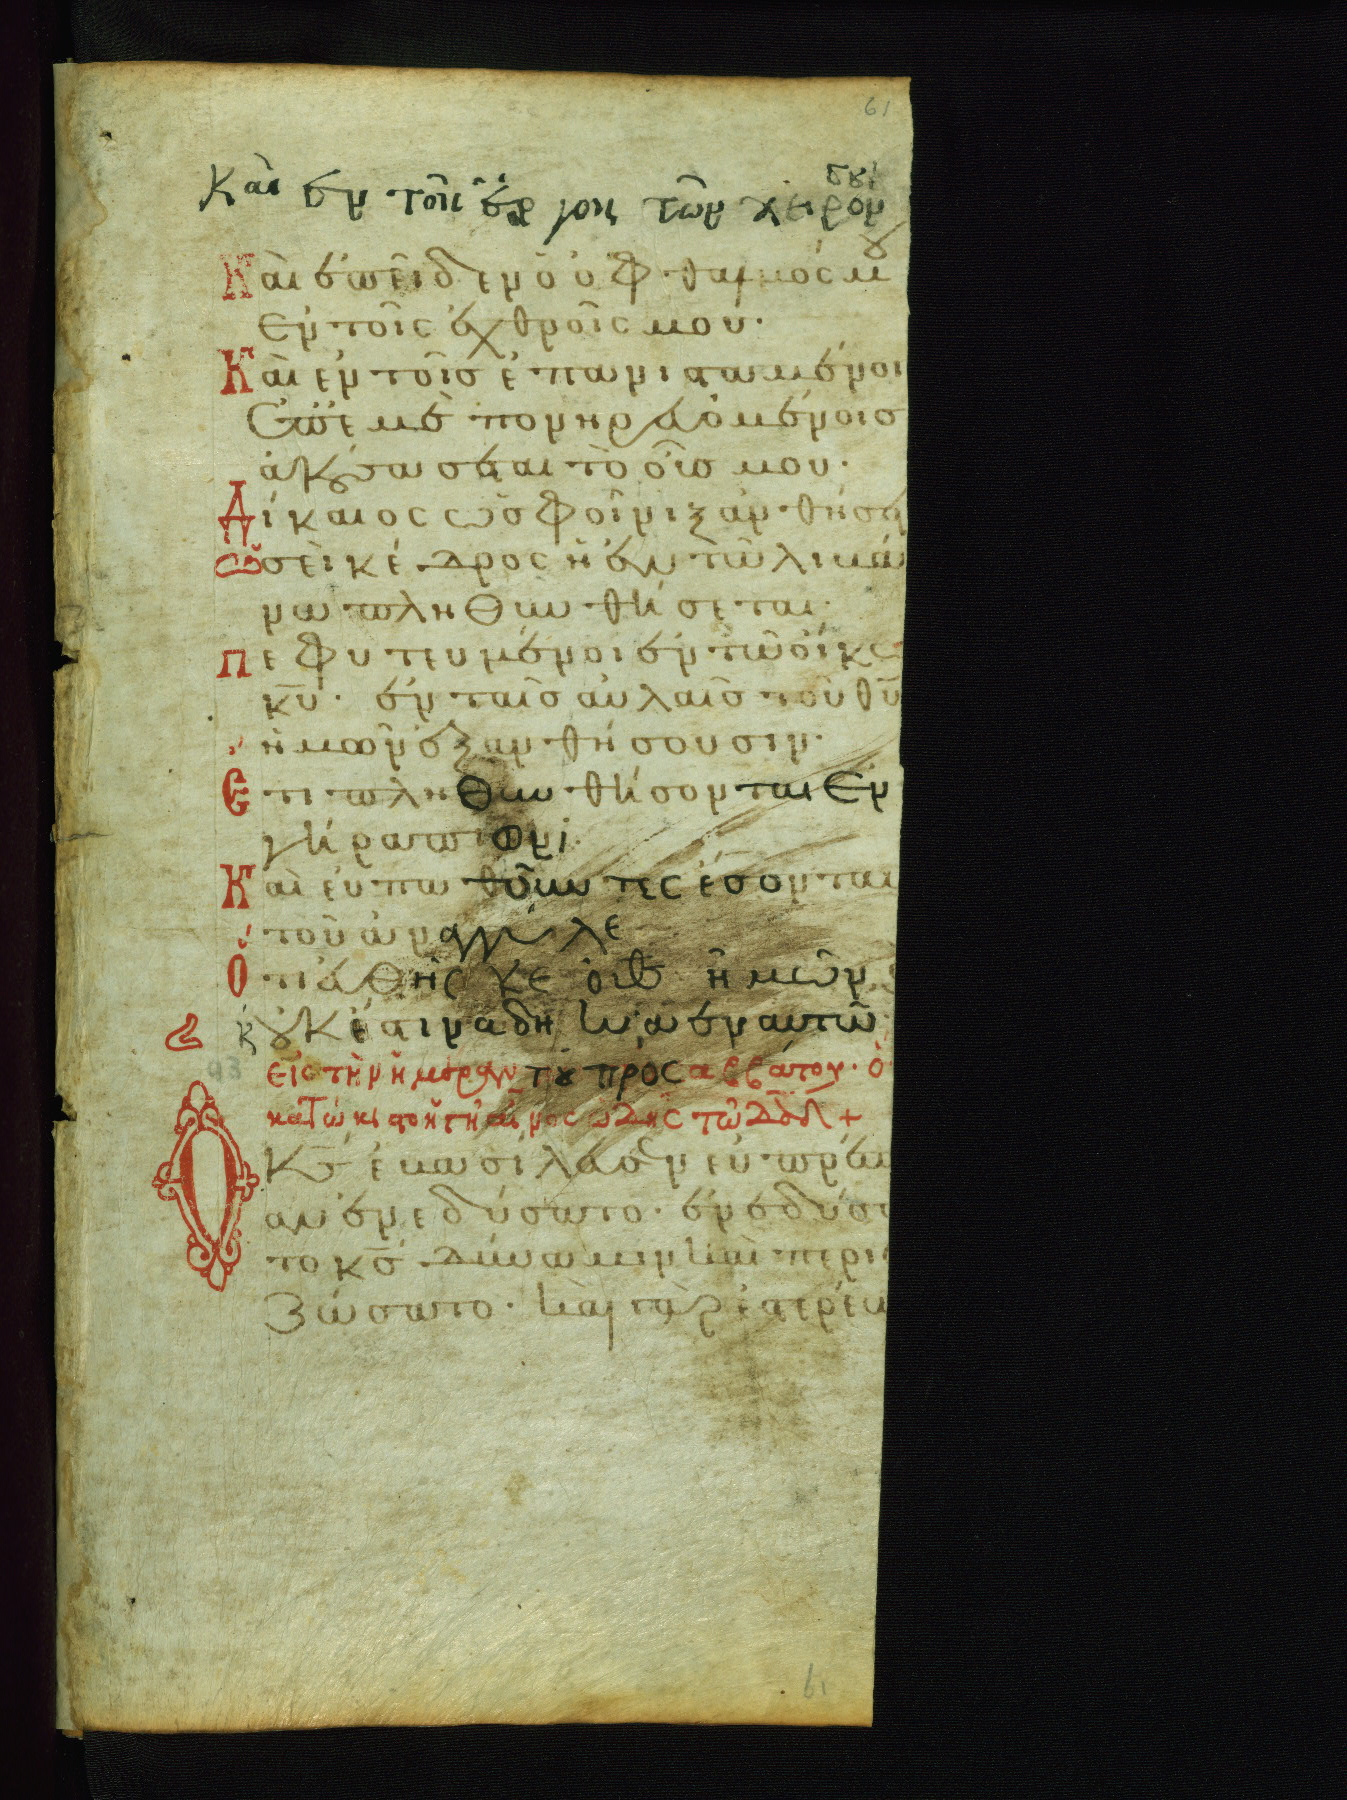 61
Καὶ ἐν τοῖς ἔργοις τῶν χειρόν
σου
Καὶ ἐπεῖδεν ὁ ὀφθαλμός μου
ἐν τοῖς ἐχθροῖς μου·
Καὶ ἐν τοῖσ ἐπανισταμένοι
ἐπ' ἐμὲ πονηρευόμένοισ
ἀκούσεται τὸ οὖσ μου·
Δίκαιος ὡσ φοῖνιξ ἀνθήσε
Ὡσεὶ κέδρος ἡ ἐν τῶ λιβά
νω πληθυνθήσεται·
Πεφυτευμένοι ἐν τῶ οἴκω
κ̅υ̅· ἐν ταῖσ αὐλαῖσ τοῦ θ̅υ̅
ἡμῶν ἐξανθήσουσιν·
Ἔτι πληθυνθήσονται ἐν
γήρα πίονι·
Καὶ εὐπαθοῦντες ἔσονται
τοῦ ἀναγγεῖλε
Ὅτι εὐθὴς κ̅ε̅ ὁ θ̅ς̅ ἡμῶν
κ οὐκ ἔστιν ἀδηκία ἐν αυτῶ
93
εἰς τὴν ἡμέραν τοῦ προσαββάτου· ὁ
κατώκισται ἡ γῆ αἶνος ὠδῆς τῶ Δαδ +
Ὁ κ̅ς̅ ἐβασίλευσεν εὐπρέπει
αν ἐνεδύσατο· ἐνεδύσα
το κ̅ς̅ δύναμιν καὶ περιε
ζώσατο· καὶ γὰρ ἐστερέω
61